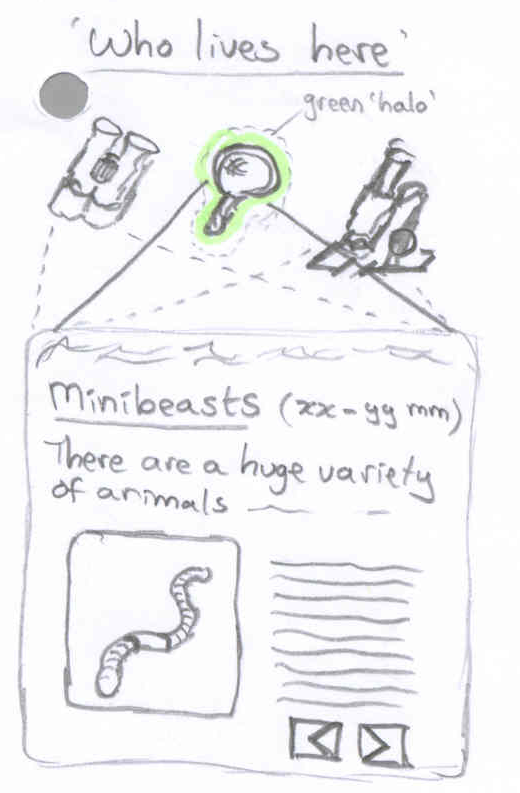 'Who lives here'
green 'halo'
Minibeasts (xx-yy mm)
There are a huge variety
of animals